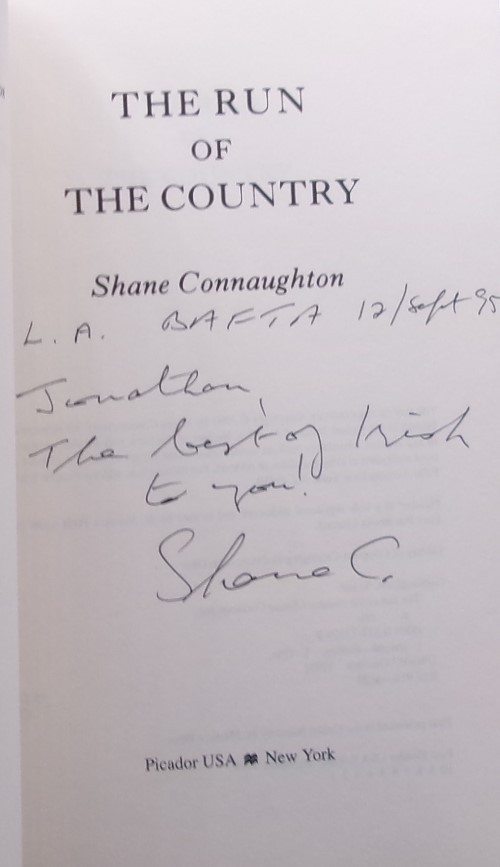 THE RUN
OF
THE COUNTRY
Shane Connaughton
L.A. BAFTA 12/Sept 95
Jonathan,
The best of Irish
to you!
Shane C.
Picador USA New York